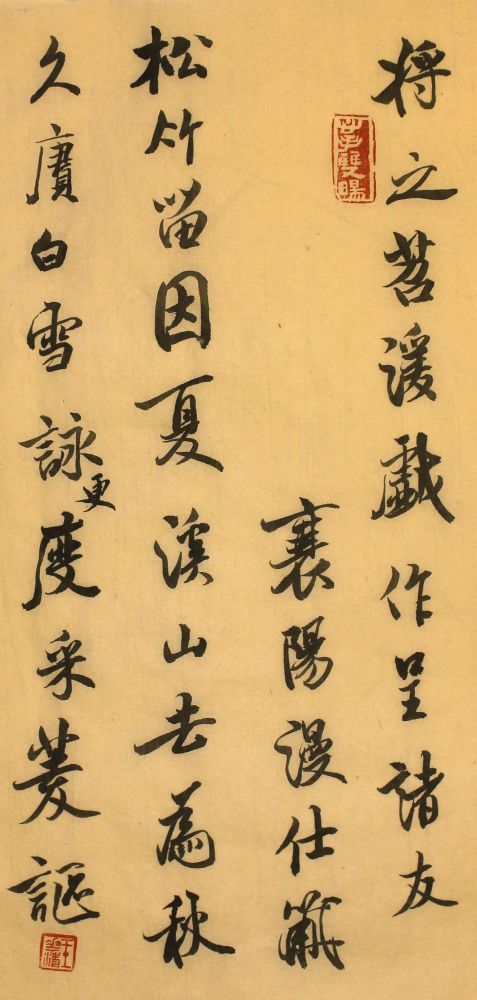 將之苕溪戲作呈諸友
襄陽漫仕黻
松竹留因夏溪山去為秋
久賡白雪詠更度采菱謳